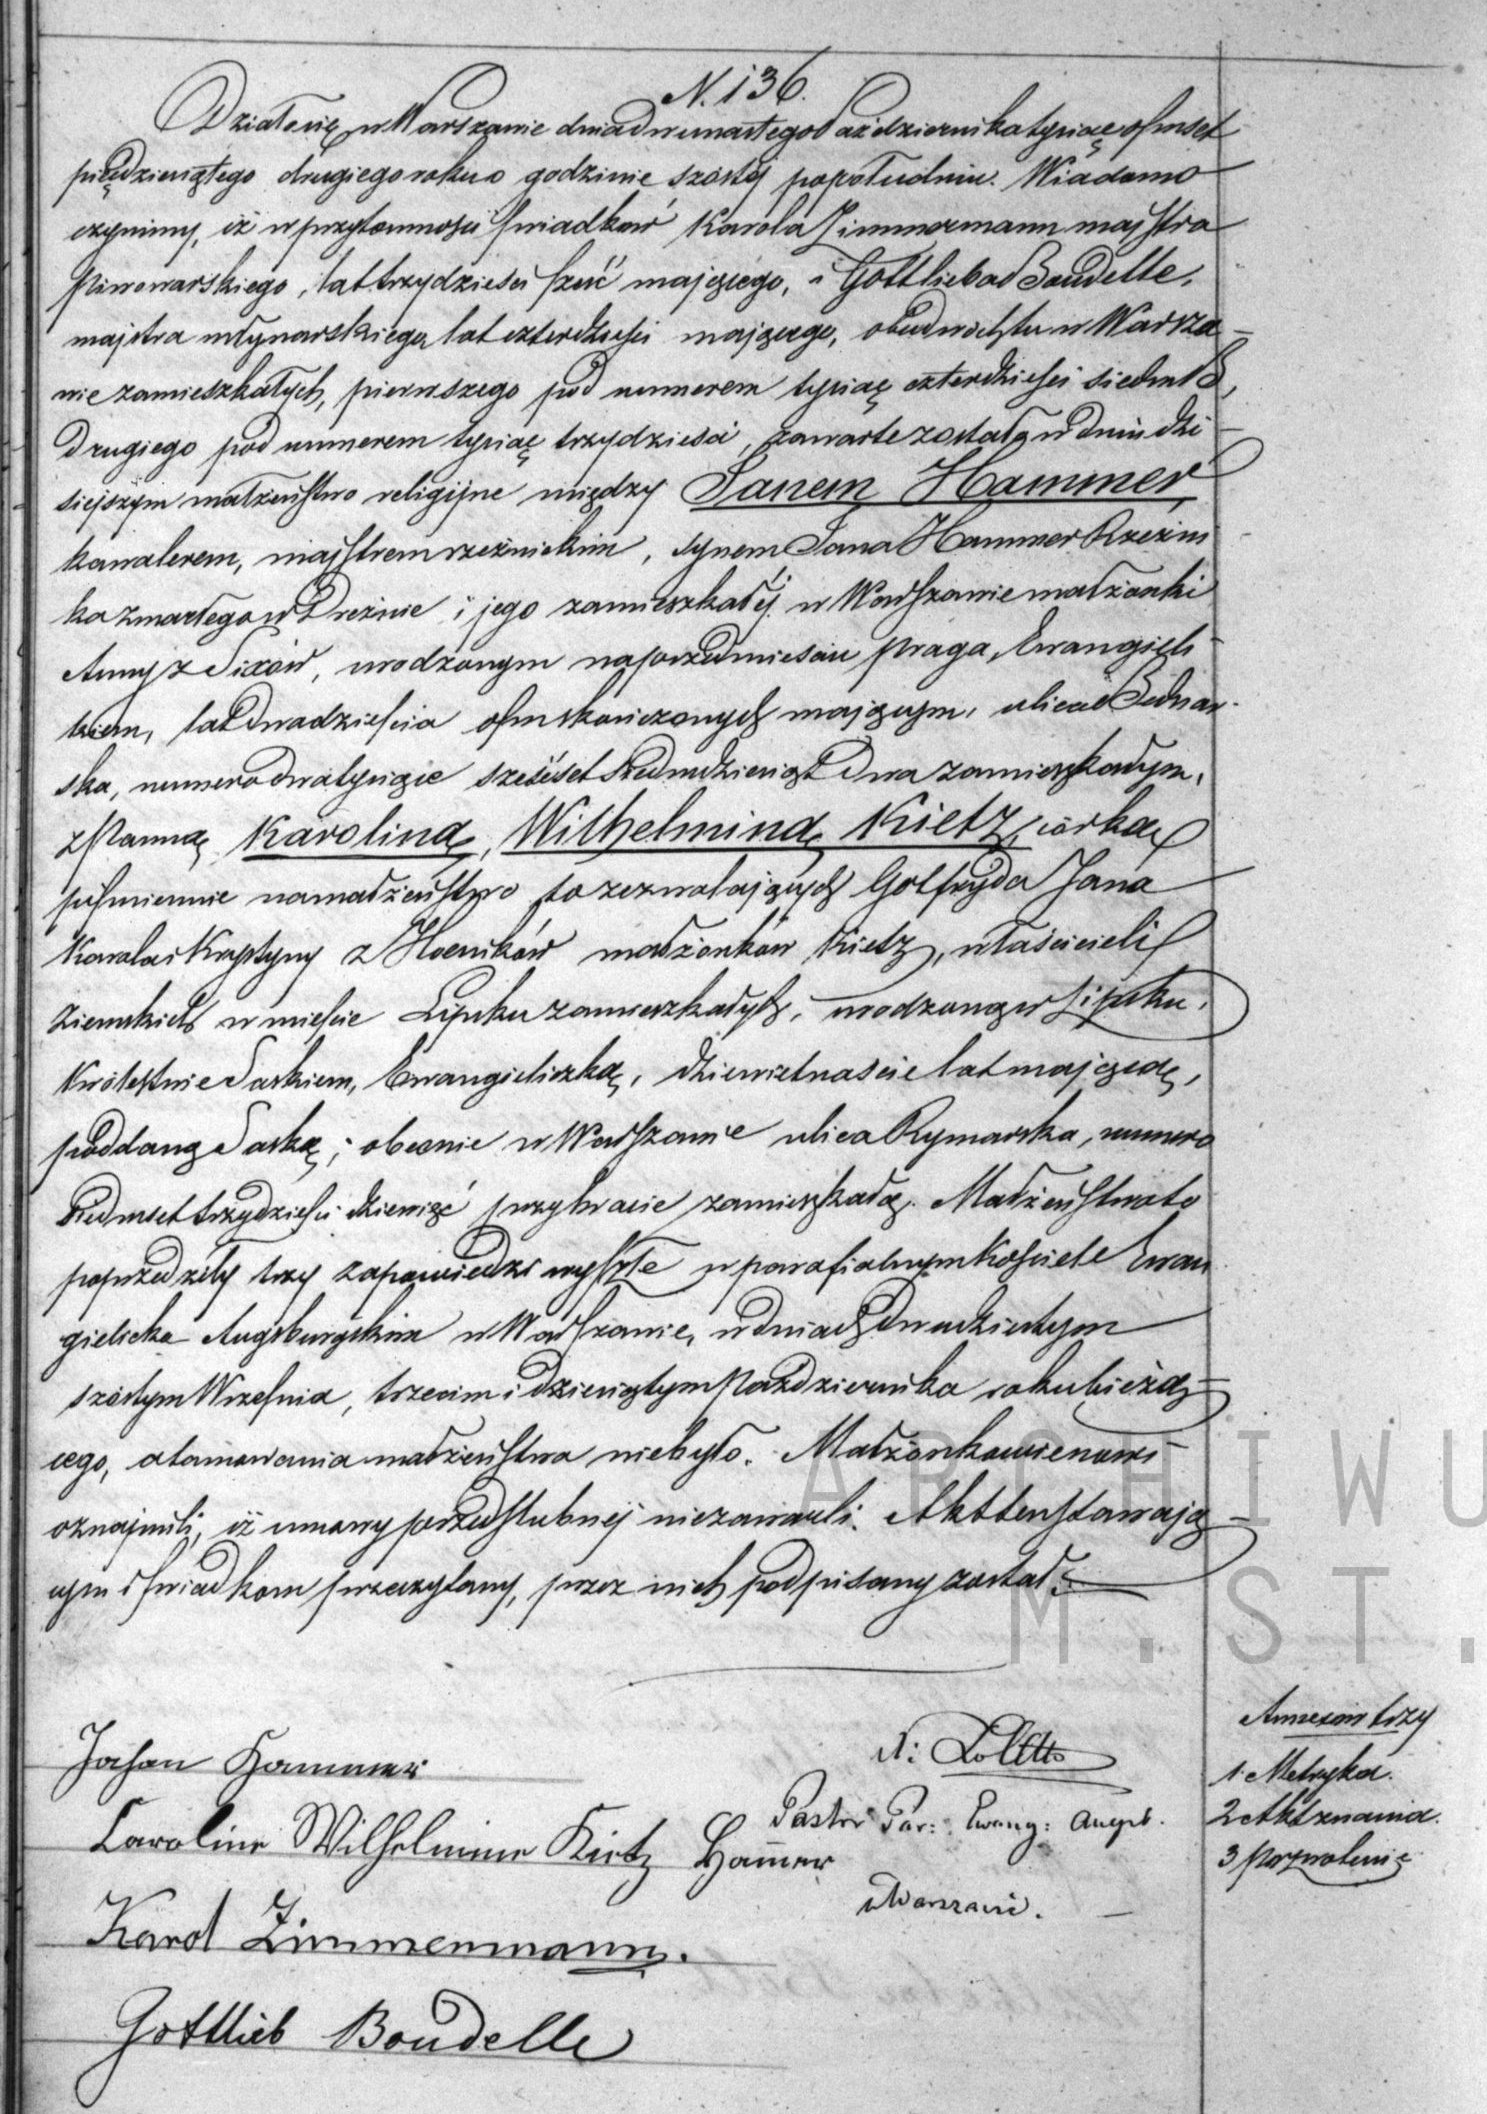 N. 136.
Działo się w Warszawie dnia dwunastego Października tysiąc ośmset
pięćdziesiątego drugiego roku o godzinie szóstej popołudniu. Wiadomo
czynimy, iż w przytomności świadków Karola Zimmermann majstra
Piwowarskiego, lat trzydzieści sześć mającego, i Gottlieba Boudelle,
majstra młynarskiego, lat czterdzieści mającego, obudwóch tu w Warsza-
wie zamieszkałych, pierwszego pod numerem tysiąc czterdzieści siedm B,
drugiego pod numerem tysiąc trzydzieści, zawarte zostało w dniu dzi-
siejszym małżeństwo religijne między Janem Hammer
kawalerem, majstrem rzeźnickim, synem Jana Hammer Rzeźni
ka zmarłego w Dreźnie i jego zamieszkałéj w Warszawie małżonki
Anny z Sixów, urodzonym na przedmieściu Praga, Ewangieli-
kiem, lat dwadzieścia ośm skończonych mającym, ulica Bednar-
ska, numero dwa tysiące sześćset siedmdziesiąt dwa zamieszkałym,
z Panną Karoliną, Wilhelminą Kietz, córką
piśmiennie na małżeństwo to zezwalających Gotfryda Jana
Karola i Krystyny z Hoeników małżonków Kietz, właścicieli
Ziemskich w mieście Lipsku zamieszkałych, urodzoną w Lipsku,
Królestwie Saskiem, Ewangieliczką, dziewietnaście lat mającą,
poddaną Saską; obecnie w Warszawie ulica Rymarska, numero
siedmset trzydzieści dziewięć przy bracie zamieszkałą. Małżeństwo to
poprzedziły trzy zapowiedzi wyszłe w parafialnym Kościele Ewan
gielicko Augsburgskim w Warszawie, w dniach dwudziestym
szóstym Września, trzecim i dziesiątym Października roku bieżą-
cego, a tamowania małżeństwa niebyło. Małżonkowie nowi
oznajmili, iż umowy przedślubnéj niezawarli. Akt ten stawają-
cym i świadkom przeczytany, przez nich podpisany został.
Johan Hammer
Caroline Wilhelmine Kietz Hamer
Karol Zimmermann.
Gottlieb Boudelle
Pastor Par: Ewang: Augsb.
w Warszawie.
Annexów trzy
1. Metryka.
2 Akt znania.
3 Pozwolenie
ARCHIWU
M.ST.